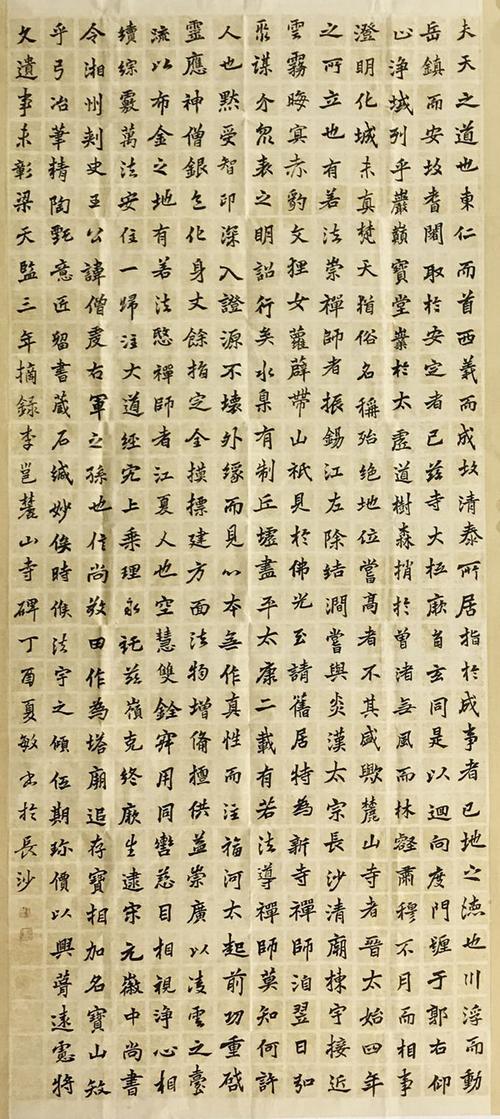 夫天之道也東仁而首西義而成故清泰所居指於成事者已地之德也川浮而動
岳鎮而安故耆闍取於安定者已茲寺大抵厥旨玄同是以迴向度門纏于郭右仰
止淨域列乎巖巔寶堂業於太虛道樹森捎於曾渚無風而林壑肅穆不月而相事
澄明化城未真梵天猶俗名稱殆絕地位嘗高者不其盛歟麓山寺者晉太始四年
之所立也有若法崇禪師者振錫江左除結澗嘗與炎漢太宗長沙清廟棟宇接近
雲霧晦冥赤豹文狸女蘿薜帶山祇見於佛光玉請舊居特為新寺禪師洎翌日弘
聚謀介眾表之明詔行矣水臬有制丘墟盡平太康二載有若法導禪師莫知何許
人也默受智印深入證源不壞外緣而見心本無作真性而注福河太起前功重啓
靈應神僧銀色化身丈餘指定全模標建方面法物增備檀供益崇廣以凌雲之臺
疏以布金之地有若法愍禪師者江夏人也空慧雙銓寂用同轡慈目相視淨心相
續綜覈萬法安住一歸注大道經究上乘理永託茲嶺克終厥生逮宋元徽中尚書
令湘州刺史王公諱僧虔右軍之孫也信尚敬田作為塔廟追存寶相加名寶山故
乎弓冶筆精陶甄意匠留書藏石緘妙俟時候法宇之傾伍期珍價以興葺遠慮特
久遺事未彰梁天監三年摘錄李邕麓山寺碑丁酉夏敏書於長沙